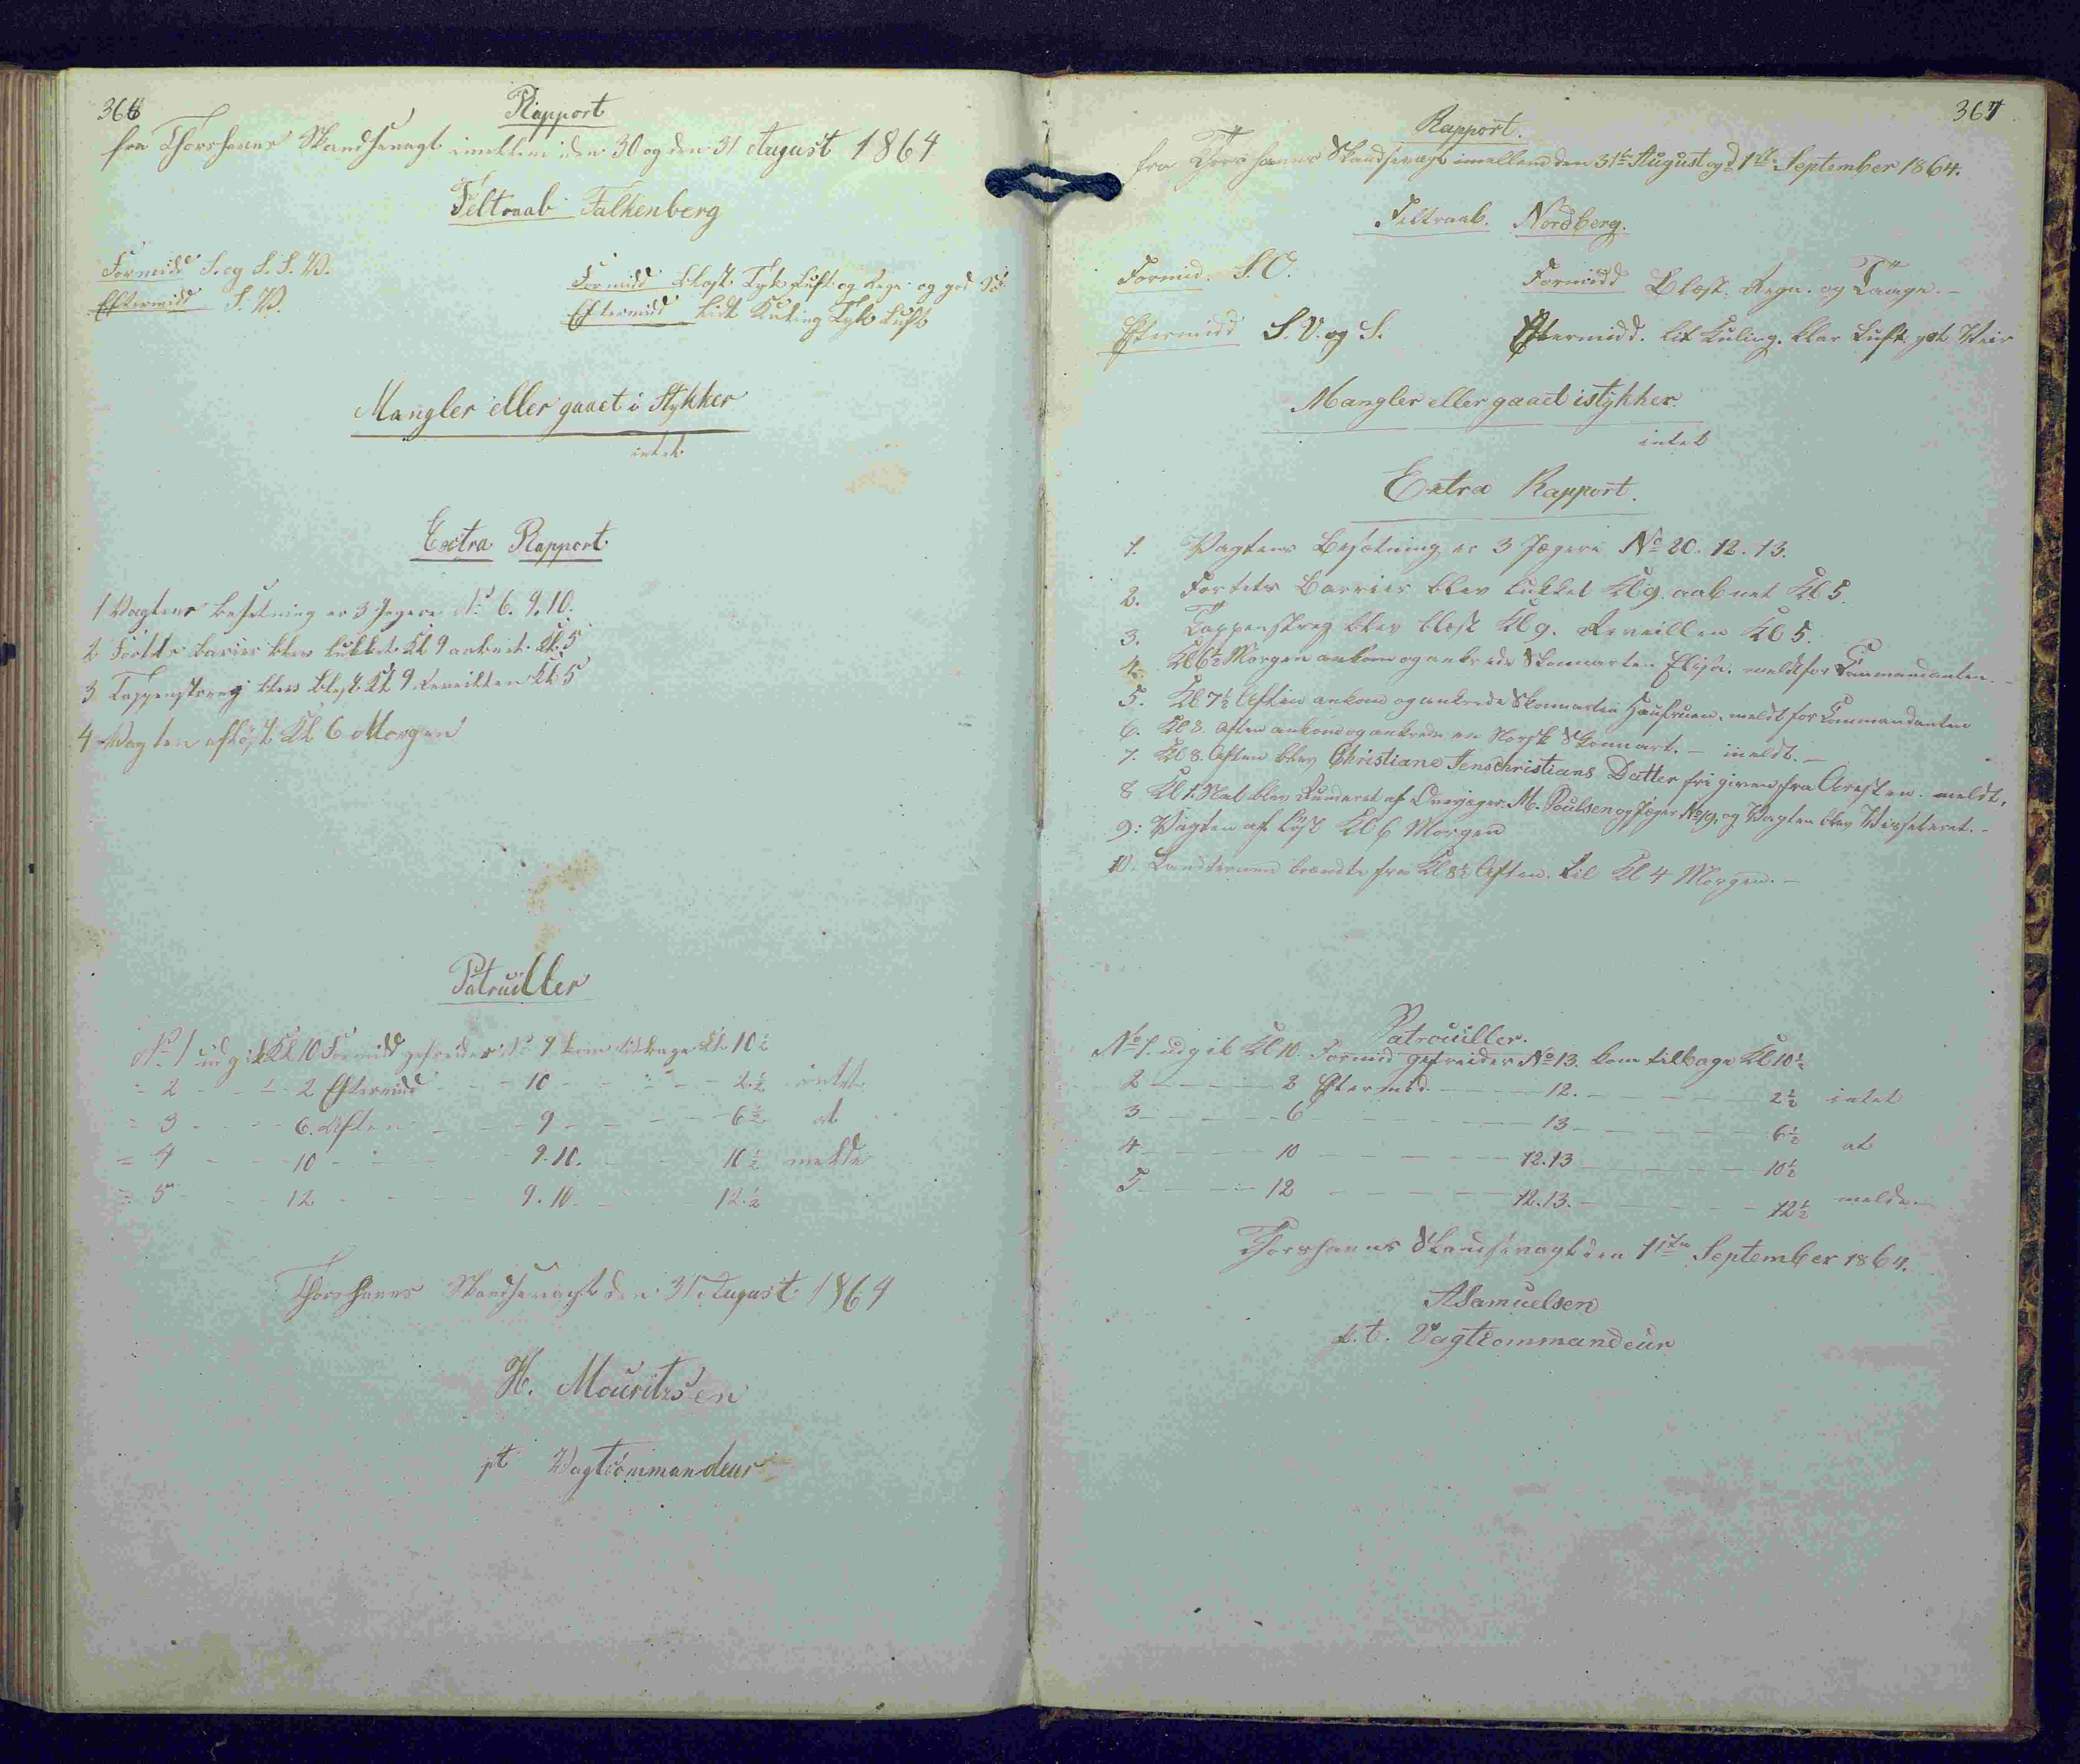 366
Rapport
fra Thorshavns Skandsevagt imellem den 30 og den 31 August 1864
Feltraab Falkenberg
Formidd S. og S. S. V.
Eftermidd S. V.
Formidd blæst Tyk Luft og Regn og god
Eftermidd lidt Kuling Tyk Luft
Mangler eller gaaet i Stykker
intet
Extra Rapport
1 Vagtens besetning er 3 Jegere No 6. 9. 10.
2 Fortets barier blev lukket Kl 9 aabnet Kl 5
3 Tappenstreg blev blest Kl 9 Reveillen Kl 5
4 Vagten afløst Kl 6 Morgen
Patruiller
No 1 udgik Kl 10 Formidd gefreider No 9 kom tilbage Kl 10½
= 2 - - - 2 Eftermidd - - - 10 - - - - 2½ intet
= 3 - - - 6. Aften - - - 9 - - - - 6½ at
= 4 - - - 10 - - - - 9. 10. - - - 10½ melde
= 5 - - - 12 - - - - 9. 10. - - - 12½
Thorshavns Skandsevagt den 31 August 1864
H. Mouritzsen
pt Vagtcommandeur
367
Rapport.
fra Thorshavns Skandsevagt imellem den 31te August og d 1ste September 1864.
Feltraab. Nordberg.
Formid. S. O.
Formidd Blæst. Regn. og Taage. -
Eftermidd S. V. og S.
Eftermidd. lit Kuling. klar Luft got Veir
Mangler eller gaaet istykker.
intet
Extra Rapport.
1. Vagtens Besætning er 3 Jægere No 20. 12. 13.
2. Fortets Barrier blev lukket Kl 9. aabnet Kl 5.
3. Tappenstreg blev blæst Kl 9. Reveillen Kl 5.
4. Kl 6½ Morgen ankom og ankrede Skonnarten Elisa. meldt for Commandanten. -
5. Kl 7½ Aften ankom og ankrede Skonnarten Haufruen. meldt for Commandanten
6. Kl 8. Aften ankom og ankrede en Norsk Skonnart. - meldt. -
7. Kl 8. Aften blev Christiane Jenschristians Datter fri given fra Aresten. meldt.
8 Kl 1. Nat blev Runderet af Overjæger. M. Poulsen og Jæger No 19, og Vagten blev Visiteret. -
9: Vagten af løst Kl 6 Morgen
10. Landternen brændte fra Kl 8½ Aften. til Kl 4 Morgen. -
Patrouiller.
No 1. udgik Kl 10. Formid gefreider No 13. kom tilbage Kl 10½
2 - - - - 2 Eftermid. - - - 12. - - - - 2½ intet
3 - - - - 6 - - - - 13 - - - - 6½ at
4 - - - - 10 - - - - 12. 13 - - - - 10½
5 - - - - 12 - - - - 12. 13. - - - - 12½ melde. -
Thorshavns Skandsevagt den 1ste September 1864.
ASamuelsen
p. t. Vagtcommandeur